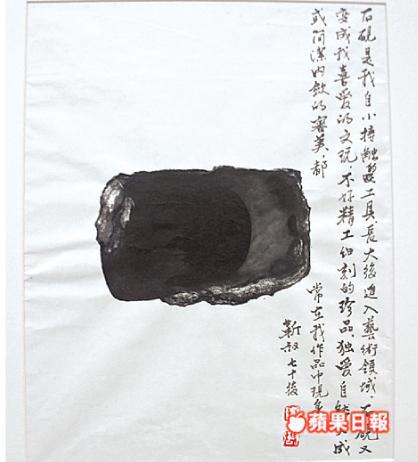 石硯是我自小接觸工具.長大後進入藝術領域.石硯又
變成我喜愛的文玩.不好精工細刻的珍品.獨愛自然天成
或簡潔內歛的審美.都
常在我作品中現身
靳叔七十後
蘋果日報